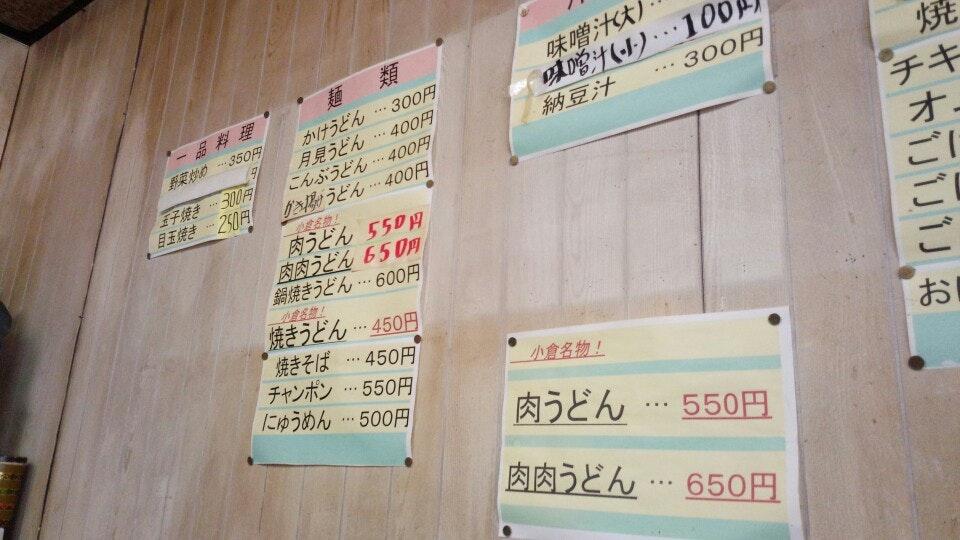 一品料理
野菜炒め … 350円
円
玉子焼き … 300円
目玉焼き … 250円
麺類
かけうどん … 300円
月見うどん … 400円
こんぶうどん … 400円
かき揚うどん … 400円
小倉名物！
肉うどん 550円
肉肉うどん 650円
鍋焼きうどん … 600円
小倉名物！
焼きうどん … 450円
焼きそば … 450円
チャンポン … 550円
にゅうめん … 500円
味噌汁(大) …
味噌汁(小) … 100円
納豆汁 … 300円
小倉名物！
肉うどん … 550円
肉肉うどん … 650円
焼
チキ
オ
ごに
ごに
ご
おに